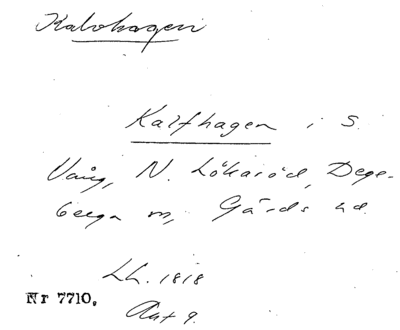 Kalvhagen
Kalfhagen i S.
Vång, N. Lökaröd, Dege-
berga sn, Gärds hd.
Lh. 1818
Akt 9.
Nr 7710.